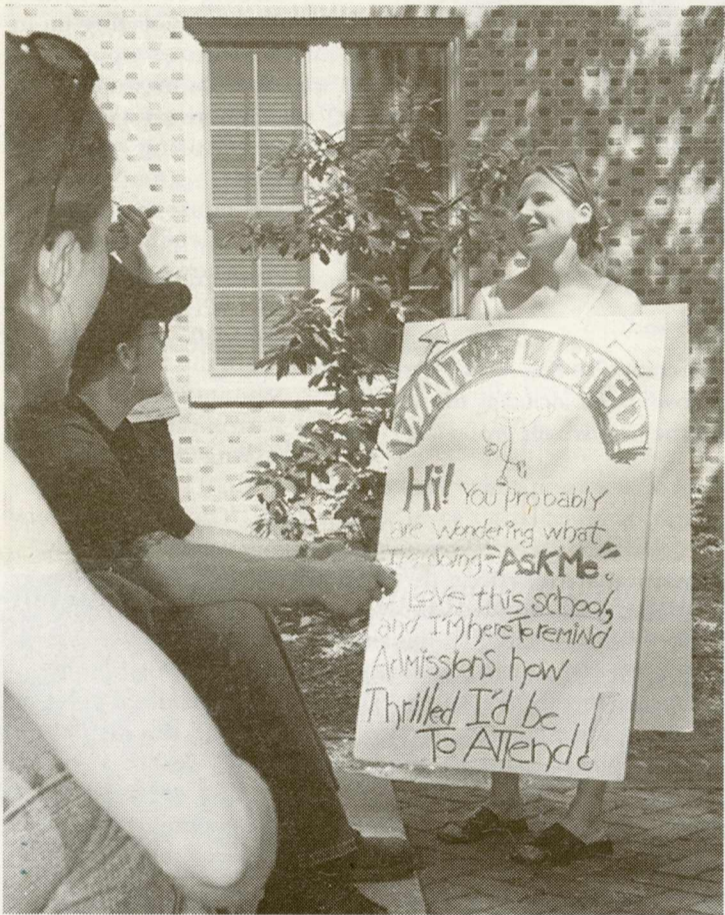 WAIT-LISTED!
Hi! You Probably
are wondering what
I'm doing - "Ask Me".
I Love this school,
and I'M here To remind
Admissions how
Thrilled I'd be
To Attend!